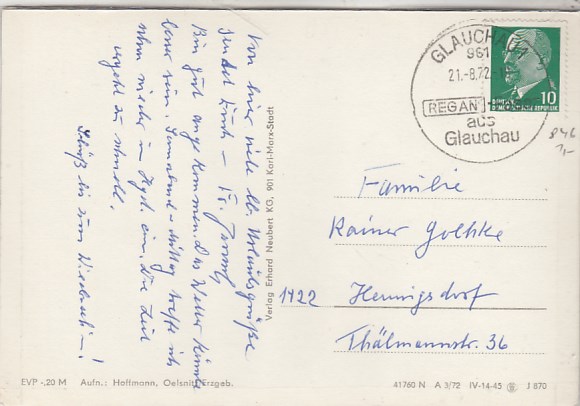 Von hier viele lb. Urlaubsgrüße
sendet Euch – Fr.
Bin gut angekommen. Das Wetter könnte
besser sein. Sonnabend – Mittag treffe ich
schon wieder in Hgdf. ein. Die Zeit
vergeht zu schnell.
Tschüß bis zum Wiedersehn –!
Verlag Erhard Neubert KG, 901 Karl-Marx-Stadt
GLAUCHAU
961
21.-8.72.-
REGAN
aus
Glauchau
10
DEUTSCHE
DEMOKRATISCHE REPUBLIK
Familie
Rainer Golhke
1422 Hennigsdorf
Thälmannstr. 36
EVP -,20 M Aufn.: Hoffmann, Oelsnitz/Erzgeb.
41760 N A 3/72 IV-14-45 J 870